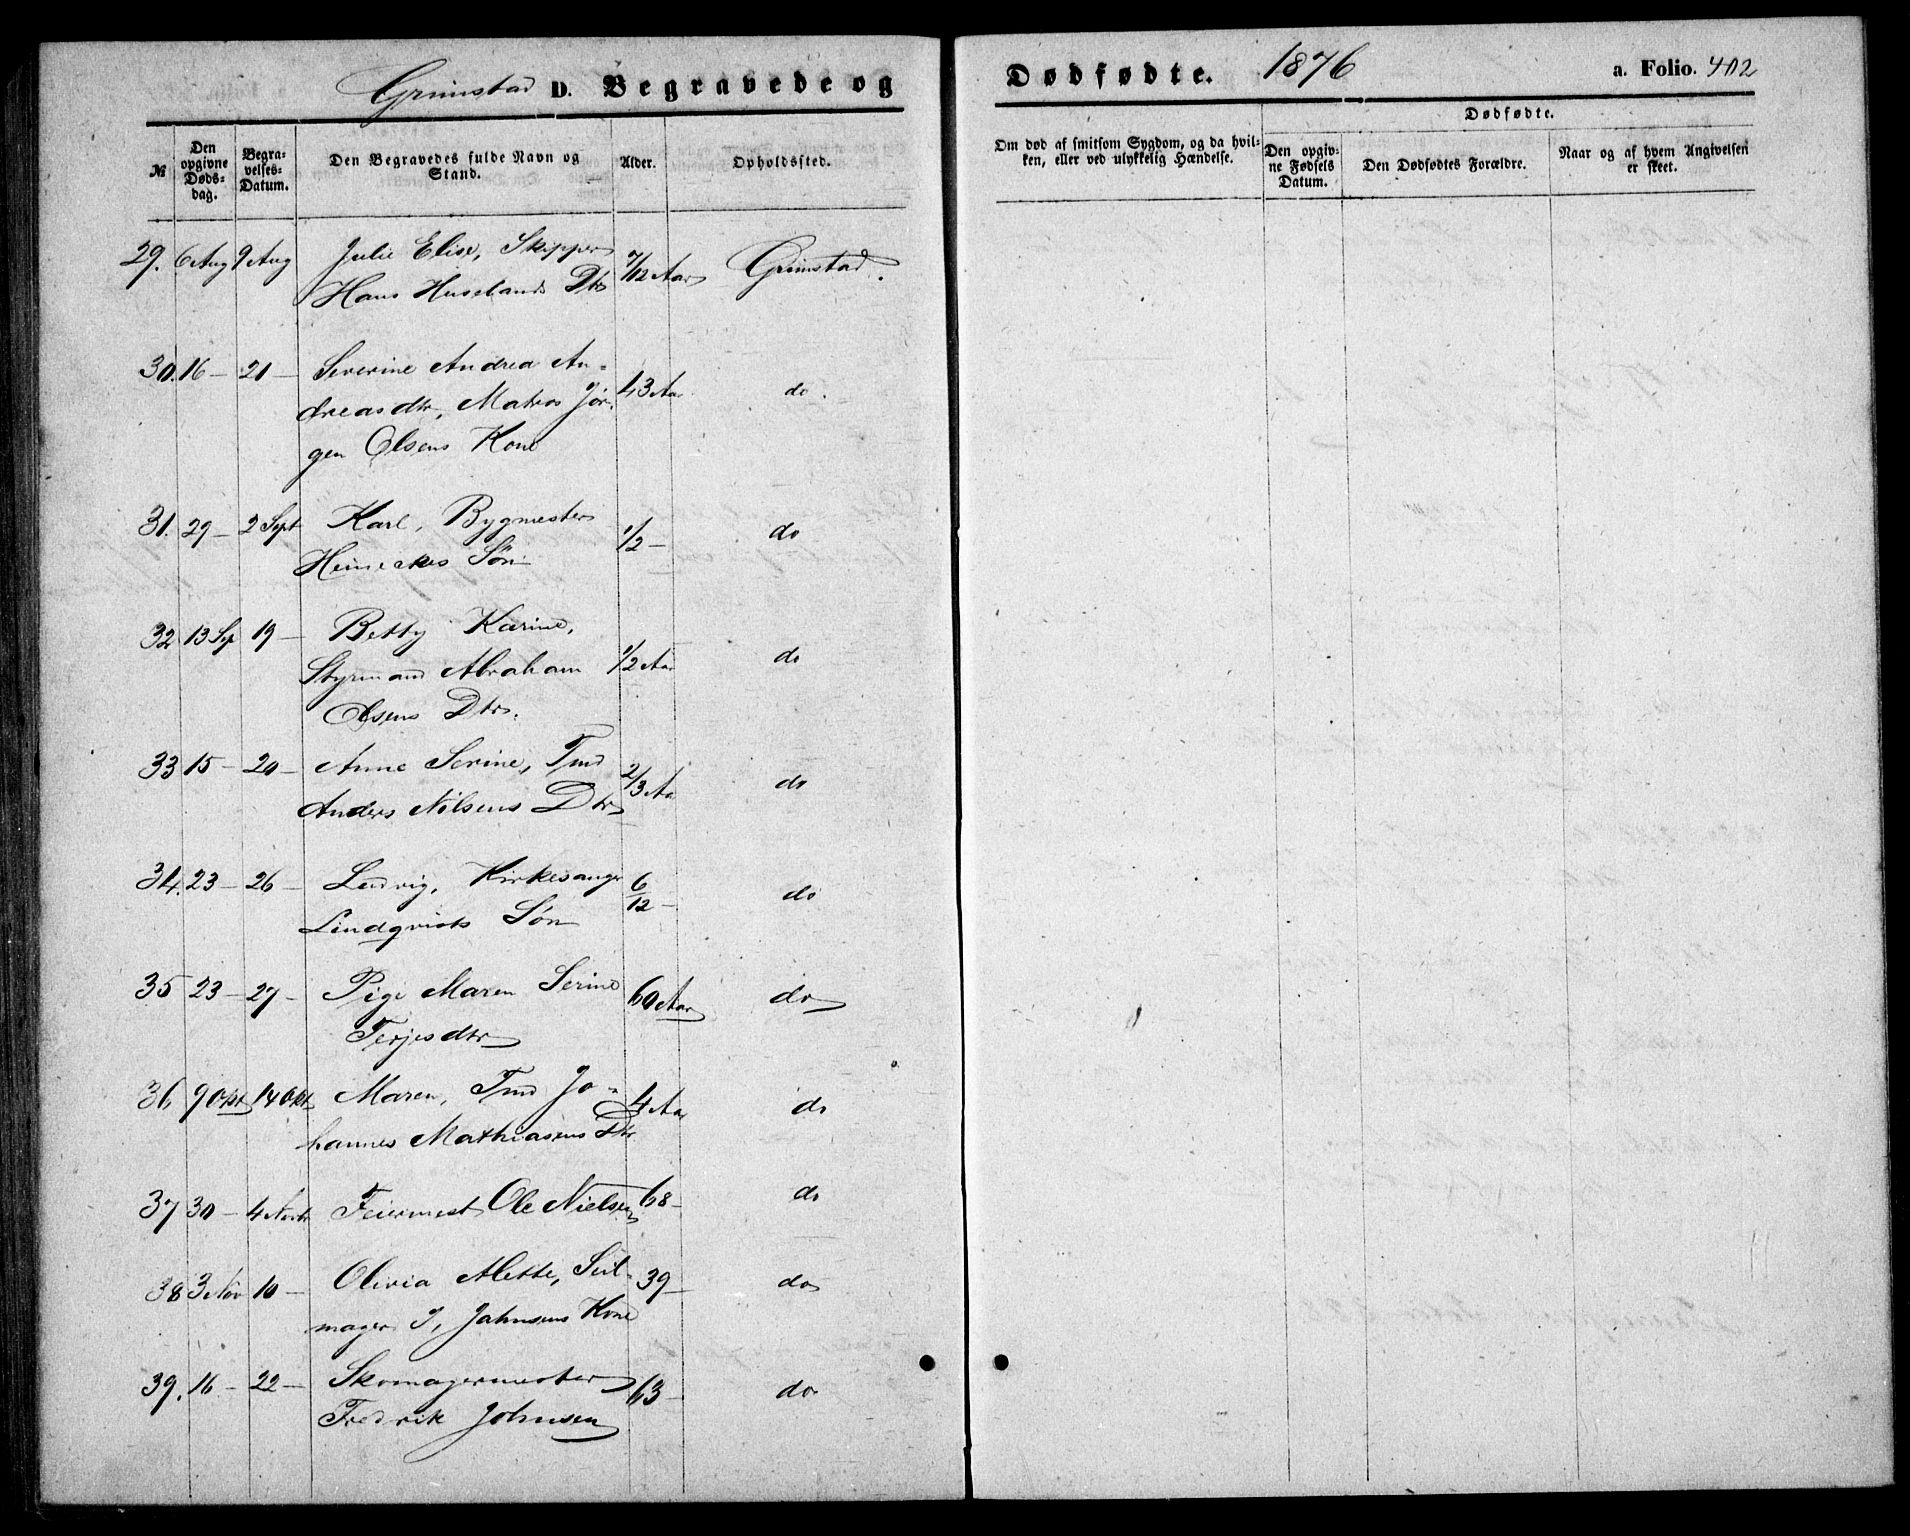 Grimstad D. Begravede og
Dødfødte. 1876 a. Folio. 402
№ Den opgivne Dødsdag. Begravelses-Datum. Den Begravedes fulde Navn og Stand. Alder. Opholdssted.
Om død af smitsom Sygdom, og da hvilken, eller ved ulykkelig Hændelse.
Dødfødte.
Den opgivne Fødsels Datum. Den Dødfødtes Forældre. Naar og af hvem Angivelsen er skeet.
29. 6 Aug 9 Aug Julie Elise, Skipper 7/12 Aar Grimstad.
Hans Huselands Dtr
30. 16 – 21 – Severine Andrea An- 43 Aar do.
dreasdtr, Matros Jør-
gen Olsens Kone
31. 29 – 2 Sept Karl, Bygmester 1/2 – do
Heineckes Søn
32 13 Sep 19 – Betty Karine, 1/2 Aar do
Styrmand Abraham
Olsens Dtr.
33 15 – 20 – Anne Serine, Tmd 2/3 Aa do
Anders Nilsens Dtr
34. 23 – 26 – Ludvig, Kirkesanger 6/12 – do
Lindqvists Søn
35 23 – 27 – Pige Maren Serine 60 Aar do
Terjesdtr
36 9 Okt 14 Okt Maren, Tmd Jo- 4 Aar do
hannes Mathiasens Dtr
37 30 – 4 Novbr Feiermest Ole Nielsen 68 – do
38 3 Nov 10 – Olivia Mette, Seil- 39 – do
mager J. Jahnsens Kone
39. 16 – 22 – Skomagermester 63 – do
Fredrik Johnsen